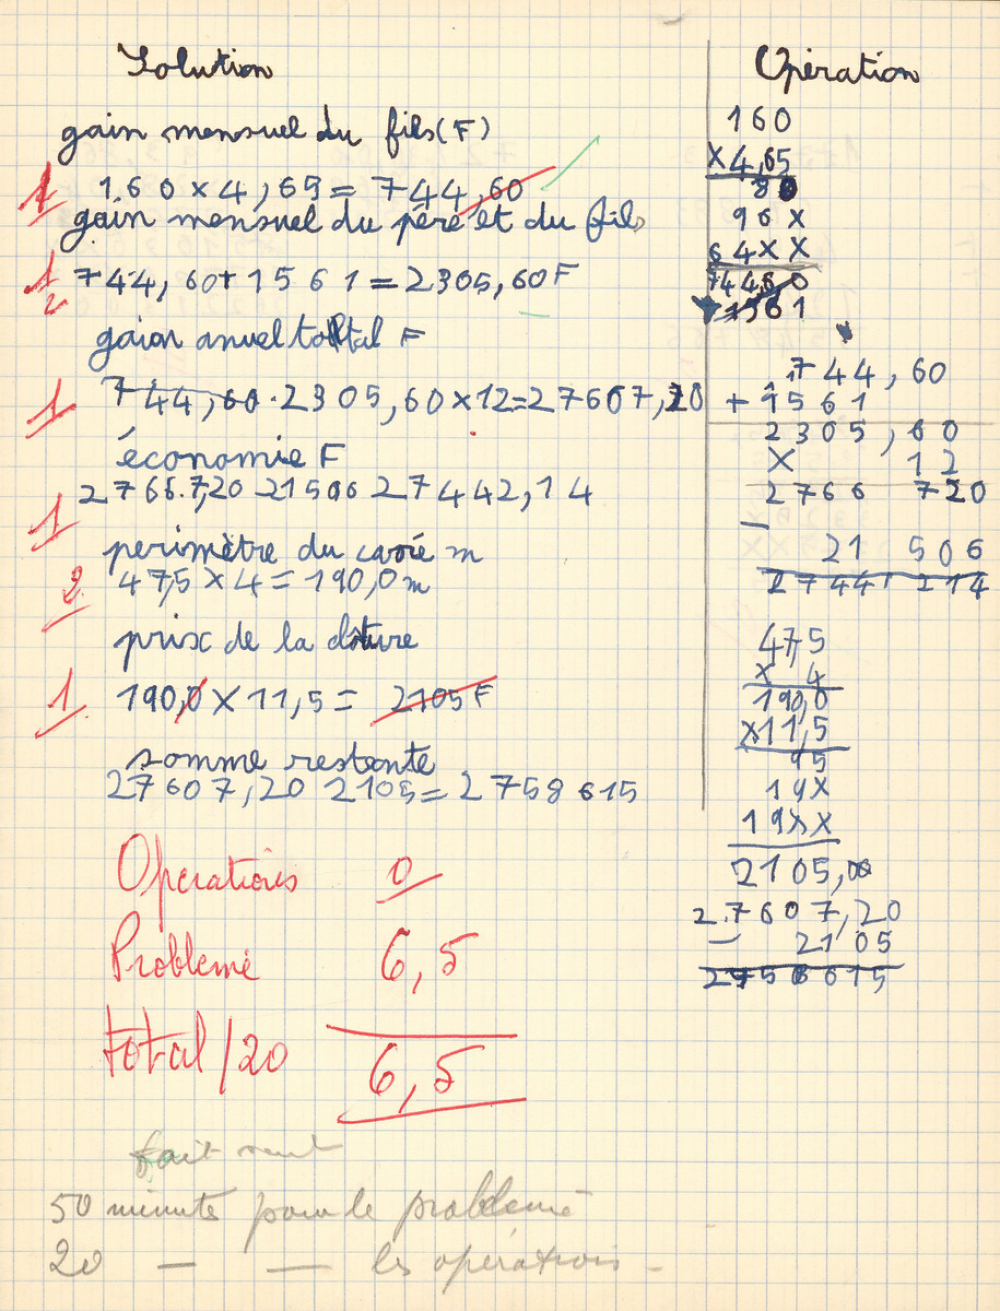 Solution
gain mensuel du fils (F)
1 160 x 4,65 = 744,60
gain mensuel du père et du fils
1/2 744,60 + 1561 = 2305,60 F
gain anuel total F
1 744,60 . 2305,60 x 12 = 27607,20
économie F
1 2766.7,20 21506 27442,14
perimètre du carré m
2 47,5 x 4 = 190,0 m
prix de la clôture
1 190,0 x 11,5 = 2105 F
somme restante
27607,20 2105 = 2758615
Operations 0
Probleme 6,5
total /20 6,5
fait seul
50 minutes pour le probleme
20 — — les opérations -
Opération
160
x 4,65
80
96 x
64 x x
744,60
1561
744,60
+ 1561
2305,60
x 12
2766 720
- 21 506
2744 214
47,5
x 4
190,0
x 11,5
95
19x
19xx
2105,00
27607,20
- 2105
2758615